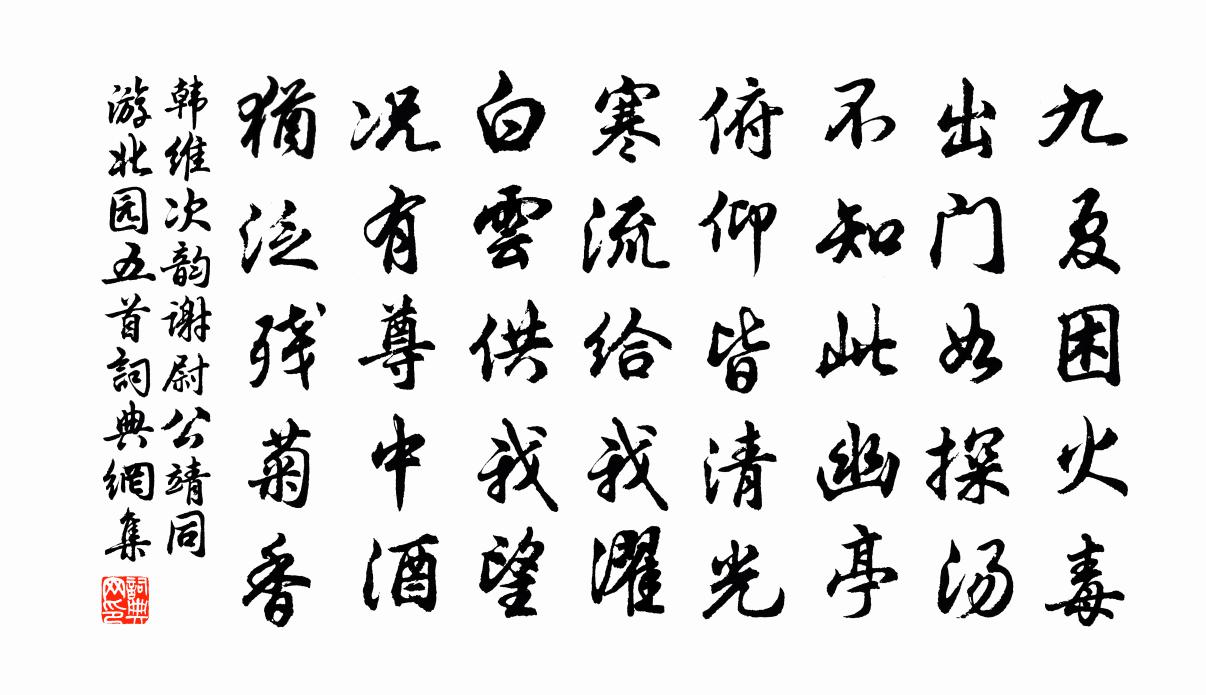 九夏困火毒
出门如探汤
不知此幽亭
俯仰皆清光
寒流给我濯
白雲供我望
况有尊中酒
犹泛残菊香
韩维次韵谢尉公靖同
游北园五首詞典網集
詞典网印